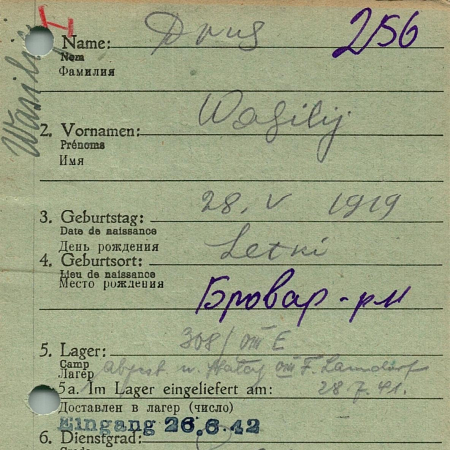 I
Wasilij
1. Name: Drug 256
Nom
Фамилия
2. Vornamen: Wasilij
Prénoms
Имя
3. Geburtstag: 28. V 1919
Date de naissance
День рождения
4. Geburtsort: Letki
Lieu de naissance
Место рождения Бровар - рн
5. Lager: 308/VIII E
Camp
Лагерь Stalag VIII F. Lamsdorf
5a. Im Lager eingeliefert am: 28.7.41.
Доставлен в лагерь (число)
Eingang 26.6.42
6. Dienstgrad: